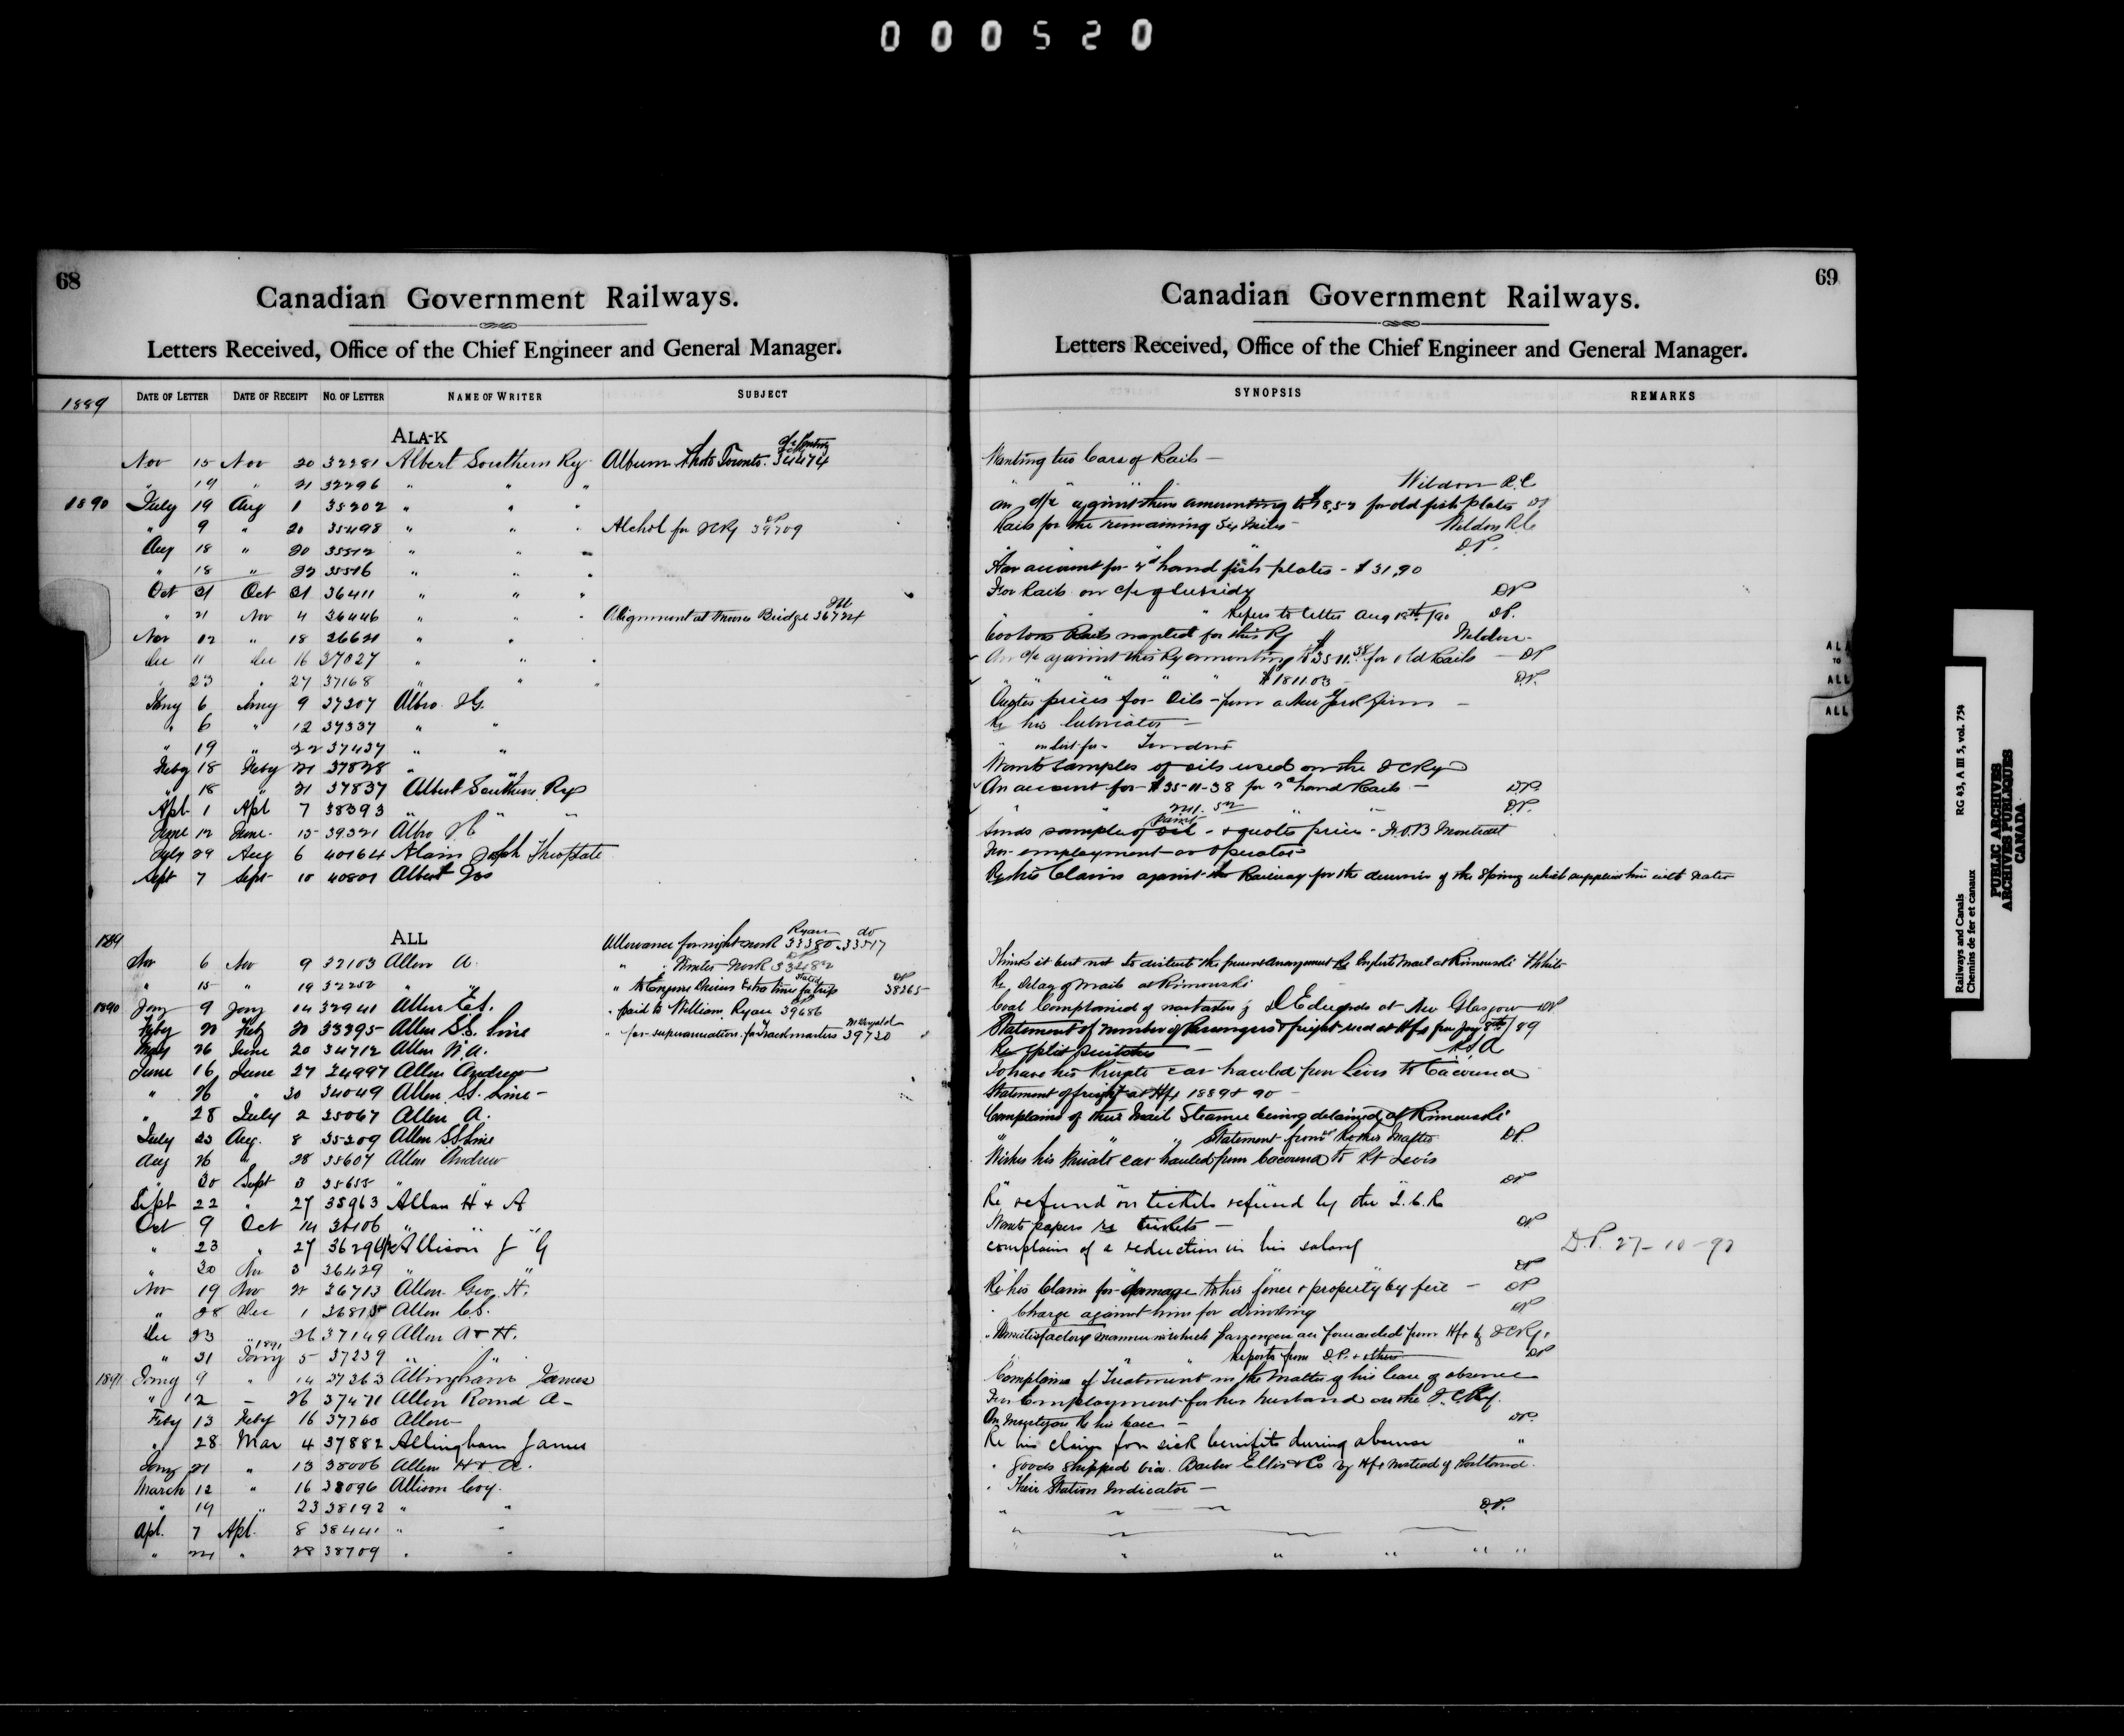 000520
68
Canadian Government Railways.
Letters Received, Office of the Chief Engineer and General Manager.
1889
DATE OF LETTER DATE OF RECEIPT NO. OF LETTER NAME OF WRITER SUBJECT
ALA-K
Nov 15 Nov 20 32281 Albert Southern Ry Album Photo Toronto. 34474
" 19 " 21 32296 " " "
1890 July 19 Aug 1 35202 " " "
" 9 " 20 35498 " " " Alchol for ICRy 39709
Aug 18 " 20 35512 " " "
" 18 " 22 35516 " " "
Oct 21 Oct 31 36411 " " "
" 21 Nov 4 36446 " " " Alignment at Bridge 36724
Nov 12 " 18 36621 " "
Dec 11 Dec 16 37027 " " "
" 23 " 27 37168 " " "
Jany 6 Jany 9 37207 Albro
" 6 " 12 37337 " "
" 19 " 22 37437 " "
Feby 18 Feby 21 37828 " "
" 18 " 21 37837 Albert Southern Ry
Apl 1 Apl 7 38393 " " "
June 12 June 15 39321 Albro
July 29 Aug 6 40164 Alain Joseph
Sept 7 Sept 10 40801 Albert Jos
1889
ALL
Allowance for night work 33380 Ryan 33517 do
Nov 6 Nov 9 32103 Allan A. " Winter work
" 15 " 19 32252 " " " to Engine Drivers Extra time 38265
1890 Jany 9 Jany 14 32941 Allen C.S. " paid to William Ryan 39686
Feby 20 Feby 20 33395 Allan S.S. Line " for superannuation for Trackmasters 39730
May 26 June 20 34712 Allen W.A.
June 16 June 27 34997 Allan Andrew
" 26 " 30 34049 Allan S.S. Line
" 28 July 2 35067 Allan A.
July 23 Aug. 8 35209 Allan S.S. Line
Aug 26 " 28 35607 Allan Andrew
" 30 Sept 3 35655 " "
Sept 22 " 27 35963 Allan H & A
Oct 9 Oct 14 36106 " " "
" 23 " 27 36296 Allison J G
" 30 Nov 3 36429 " "
Nov 19 Nov 22 36713 Allen Geo. H.
" 28 Dec 1 36815 Allen C.S.
Dec 23 " 26 37149 Allan A & H.
" 31 1891 Jany 5 37239 " "
1891 Jany 9 " 14 37363 Allingham James
" 12 - 26 37471 Allen A
Feby 13 Feby 16 37760 Allen
" 28 Mar 4 37882 Allingham James
Jany 21 " 13 38006 Allan H & A.
March 12 " 16 38096 Allison Coy.
" 19 " 23 38192 " "
Apl. 7 Apl. 8 38441 " "
" 24 " 28 38709 " "
69
Canadian Government Railways.
Letters Received, Office of the Chief Engineer and General Manager.
SYNOPSIS REMARKS
Wanting two Cars of Rails
" " " " Weldon
an a/c against them amounting to for old fish plates DP
Rails for the remaining 3¼ Miles Weldon
" " " " DP.
For account for 2nd hand fish plates - $31.90
For Rails on a/c of subsidy DP
" " Refers to letter Aug 18th/90 DP.
Rails wanted for this Ry Weldon
An a/c against this Ry amounting to $3511.38 for old Rails DP
" " " " $1811.03 D.P.
Quotes prices for Oils from a New York firm
Re his lubricator
"
Wants samples of oils used on the ICRy
An account for $35-11-38 for 2nd hand Rails D.P.
" " " " D.P.
Sends sample of paint & quotes price F.O.B Montreal
For employment as Operator
Re his Claim against the Railway for the of the Spring which supplied him with Water
Thinks it best not to disturb the present arrangement Re English Mail at Rimouski
Re delay of mails at Rimouski
Coal Complained of by D Edwards at New Glasgow DP
Statement of number of Passengers & freight at Hfx from Jany 89
Re split switches
To have his Private car hauled from Levis to Cacouna
Statement of freight at Hfx 1889 & 90
Complains of their Mail Steamer being delayed at Rimouski
" " " Statement from DP.
Wishes his Private car hauled from Cacouna to Pt Levis
" " DP
Re refund on tickets refund by the I.C.R
Wants papers re tickets DP
complains of a reduction in his salary D.P. 27-10-90
" " DP
Re his Claim for damage to his fence & property by fire DP
" Charge against him for drinking DP
" Unsatisfactory manner in which passengers are forwarded from Hfx by ICRy.
" " Reports from D.P. & others DP
Complains of Treatment in the Matter of his leave of absence
For Employment for her husband on the I.C.Ry.
Re his case DP.
Re his claim for sick benefits during absence "
" goods shipped via. Barber Ellis & Co by Hfx instead of Portland
" Their Station Indicator
" " " D.P.
" " "
" " " " "
ALA
TO
ALL
ALL
RG 43, A III 5, vol. 754
Railways and Canals
Chemins de fer et canaux
PUBLIC ARCHIVES
ARCHIVES PUBLIQUES
CANADA